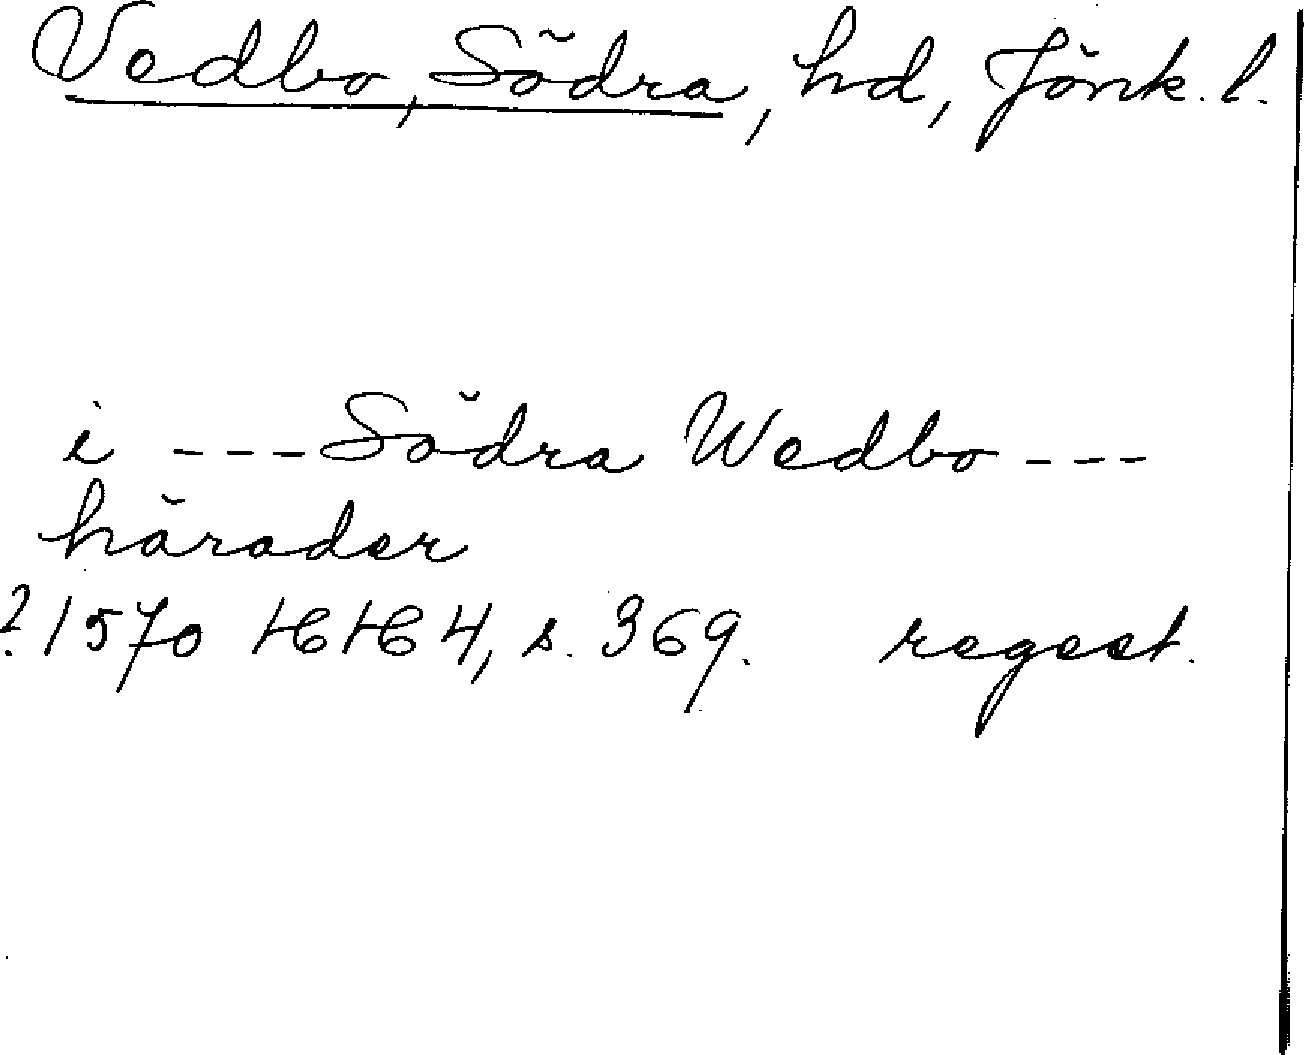 Vedbo, Södra, hd, Jönk. l.
i --- Södra Wedbo ---
härader
? 1570 HH 4, s. 369. regest.